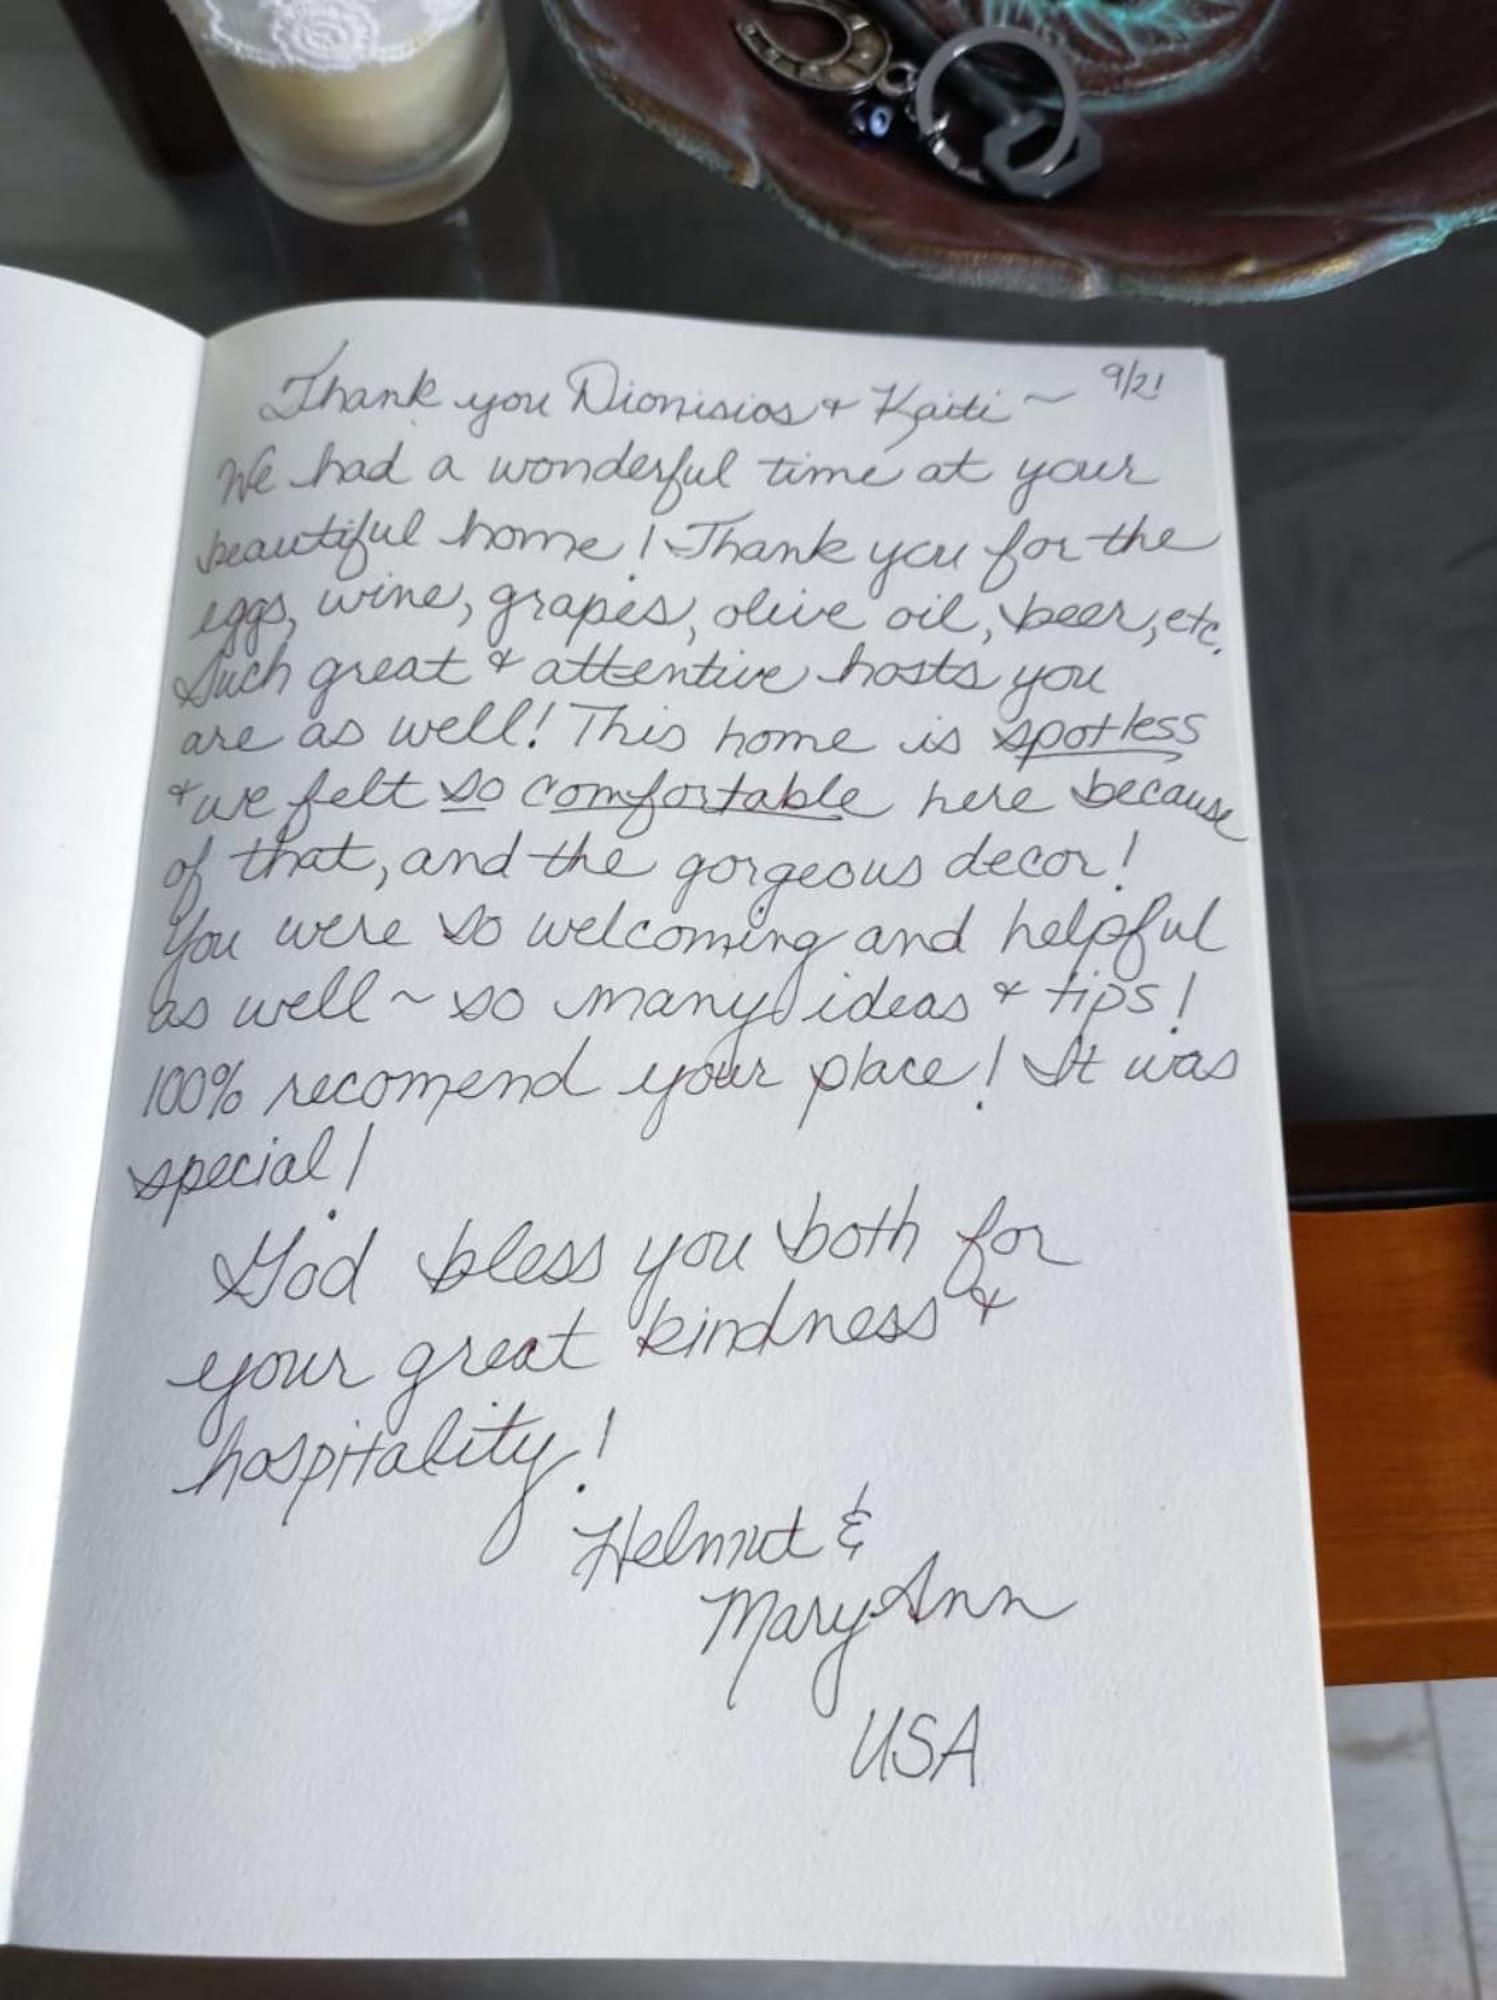 Thank you Dionisios & Kaiti ~ 9/21
We had a wonderful time at your
beautiful home! Thank you for the
eggs, wine, grapes, olive oil, beer, etc.
Such great & attentive hosts you
are as well! This home is spotless
& we felt so comfortable here because
of that, and the gorgeous decor!
You were so welcoming and helpful
as well ~ so many ideas & tips!
100% recomend your place! It was
special!
God bless you both for
your great kindness &
hospitality!
Helmut &
MaryAnn
USA